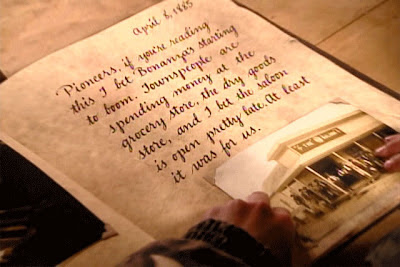 April 6, 1885
Pioneers, if you're reading
this I bet Bonanza's starting
to boom. Townspeople are
spending money at the
grocery store, the dry goods
store, and I bet the saloon
is open pretty late. At least
it was for us.